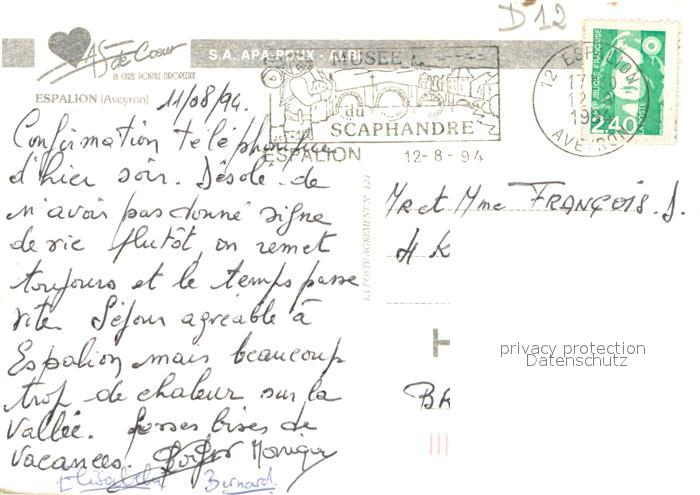 D12
As de Cœur
LA CARTE POSTALE EUROPEENNE
S.A. APA-POUX - ALBI
ESPALION (Aveyron)
MUSEE
du
SCAPHANDRE
ESPALION 12-8-94
12 ESPALION
12-8
AVEYRON
REPUBLIQUE FRANÇAISE
2,40
LA POSTE
11/08/94.
Confirmation téléphonique
d'hier soir. Désolé de
n'avoir pas donné signe
de vie plutôt, on remet
toujours et le temps passe
vite. Séjour agréable à
Espalion mais beaucoup
trop de chaleur sur la
vallée. Grosses bises de
vacances. Monique
Elisabeth Bernard
LA POSTE AGREMENT N° 121
Mr et Mme FRANÇOIS. J.
4 K
BR
privacy protection
Datenschutz